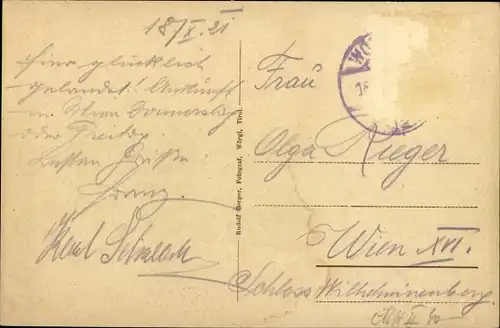 18/X. 21
Hier glücklich
gelandet! Ankunft
in Wien Donnerstag
oder Freitag
Besten Grüße
Franz.
Karl
Rudolf Berger, Fotograf, Wörgl, Tirol.
WÖ
Frau
Olga Rieger
Wien XVI.
Schloss Wilhelminenberg